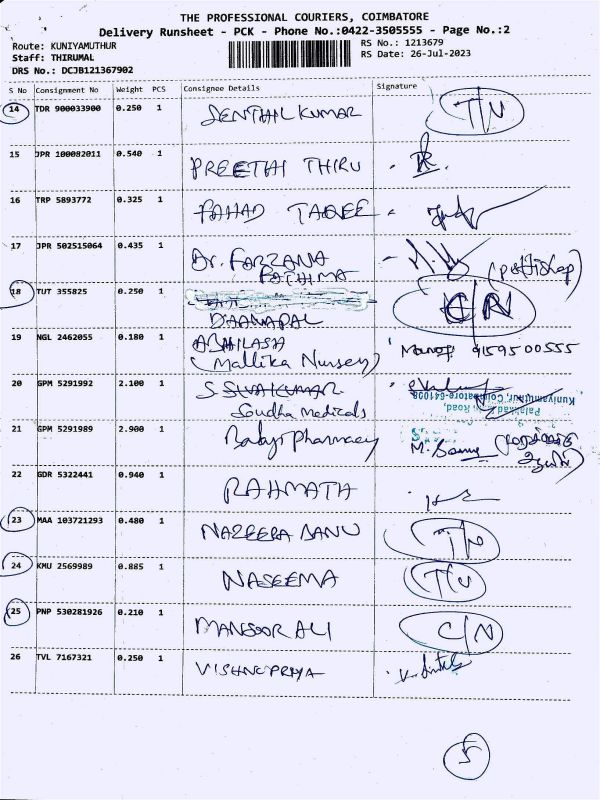 THE PROFESSIONAL COURIERS, COIMBATORE
Delivery Runsheet - PCK - Phone No.:0422-3505555 - Page No.:2
Route: KUNIYAMUTHUR
RS No.: 1213679
Staff: THIRUMAL
RS Date: 26-Jul-2023
DRS No.: DCJB121367902
S No Consignment No Weight PCS Consignee Details Signature
14 TDR 900033900 0.250 1 SENTHIL KUMAR T/N
15 JPR 100082011 0.540 1 PREETHI THIRU
16 TRP 5893772 0.325 1 FAHAD
17 JPR 502515064 0.435 1 Dr. FARZANA
FATHIMA
18 TUT 355825 0.250 1 C/N
DHANAPAL
19 NGL 2462055 0.180 1 ABHILASH
(Mallika Nursery) Manoj 9159500555
20 GPM 5291992 2.100 1 S SIVAKUMAR
Soudha Medicals
Palakkad Road,
Kuniyamuthur, Coimbatore-641008
21 GPM 5291989 2.900 1 Babys Pharmacy
22 GDR 5322441 0.940 1 RAHMATH
23 MAA 103721293 0.480 1 NAZEERA BANU T/N
24 KMU 2569989 0.885 1 NASEEMA T/N
25 PNP 530281926 0.210 1 MANSOOR ALI C/N
26 TVL 7167321 0.250 1 VISHNUPRIYA
5